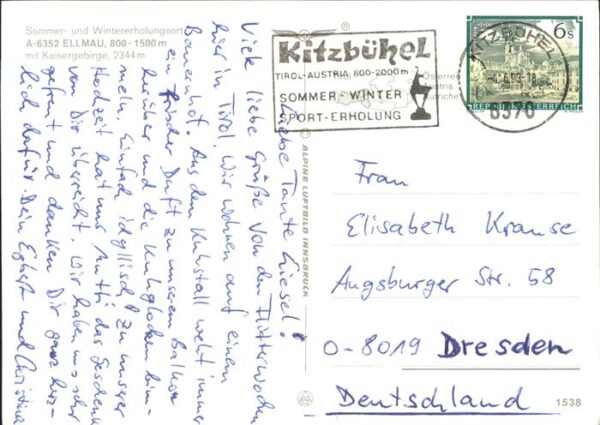 Sommer- und Wintererholungsort
A-6352 ELLMAU, 800-1500 m
mit Kaisergebirge, 2344 m
Kitzbühel
TIROL-AUSTRIA 800-2000m
SOMMER-WINTER
SPORT-ERHOLUNG
KITZBÜHEL
6370
6s
REPUBLIK ÖSTERREICH
Österreich
Austria
Autriche
Liebe Tante Liesel!
Viele liebe Grüße von den Flitterwochen
hier in Tirol. Wir wohnen auf einem
Bauernhof. Aus dem Kuhstall weht immer
ein frischer Duft zu unserem Balkon
herüber und die Kuhglocken bim-
meln. Einfach idyllisch! Zu unserer
Hochzeit hat uns Mutti das Geschenk
von Dir überreicht. Wir haben uns sehr
gefreut und danken Dir ganz herz-
lich dafür. Dein Egbert und Christina
© ALPINE LUFTBILD INNSBRUCK
Frau
Elisabeth Krause
Augsburger Str. 58
O-8019 Dresden
Deutschland
1538